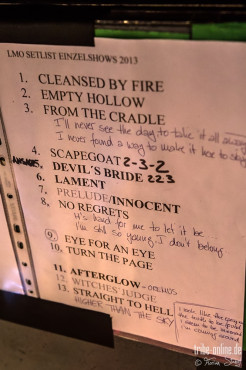 LMO SETLIST EINZELSHOWS 2013
1. CLEANSED BY FIRE
2. EMPTY HOLLOW
3. FROM THE CRADLE
I'll never see the day to take it all away
I never found a way to make it here to stay
4. SCAPEGOAT 2-3-2
5. DEVIL'S BRIDE 223
6. LAMENT
7. PRELUDE/INNOCENT
8. NO REGRETS
it's hard for me to let it be
I'm still so young I don't belong
9. EYE FOR AN EYE
10. TURN THE PAGE
11. AFTERGLOW -
12. WITCHES' JUDGE
13. STRAIGHT TO HELL
HIGHER THAN THE SKY
tribe-online.de